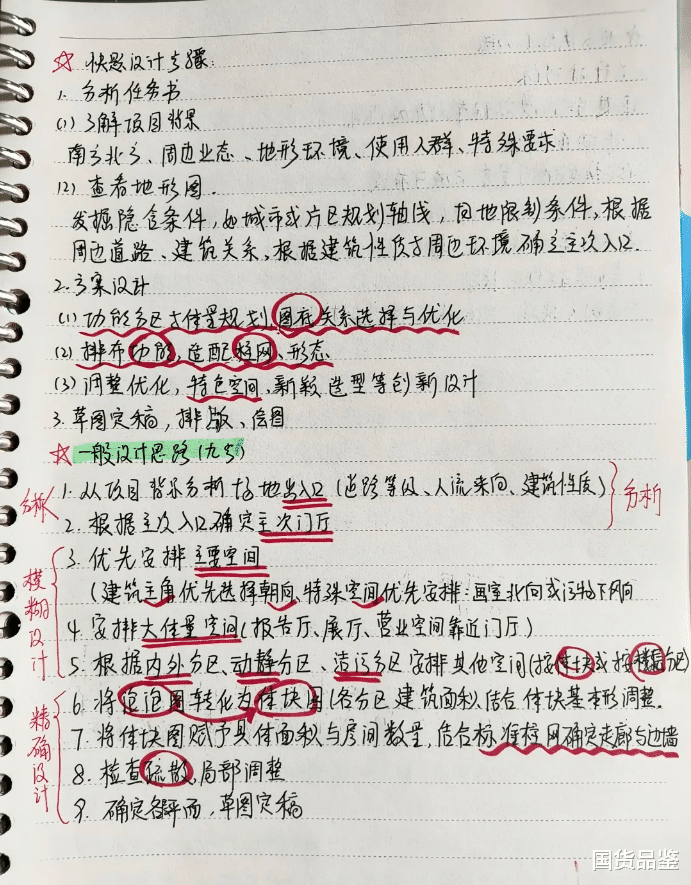 ☆ 快题设计步骤:
1. 分析任务书
(1) 了解项目背景
南方北方、周边业态、地形环境、使用人群、特殊要求
(2) 查看地形图.
发掘隐含条件,如城市或片区规划轴线,用地限制条件,根据
周边道路、建筑关系,根据建筑性质与周边环境确立主次入口.
2. 方案设计
(1) 功能分区与体量规划,图底关系选择与优化
(2) 排布功能,适配柱网、形态
(3) 调整优化,特色空间、新颖造型等创新设计
3. 草图定稿,排版、绘图
☆ 一般设计思路(九步)
1. 从项目背景分析场地出入口(道路等级、人流来向、建筑性质)
2. 根据主次入口确定主次门厅
分析
分析
3. 优先安排主要空间
(建筑主角优先选择朝向,特殊空间优先安排:画室北向或污物下风向
4. 安排大体量空间(报告厅、展厅、营业空间靠近门厅)
5. 根据内外分区、动静分区、洁污分区安排其他空间(按体块或按楼层分区)
模糊设计
6. 将泡泡图转化为体块图(各分区建筑面积结合体块基本形调整.
7. 将体块图赋予具体面积与房间数量,结合标准柱网确定走廊与边墙
8. 检查疏散,局部调整
9. 确定各平面,草图定稿
精确设计
国货品鉴